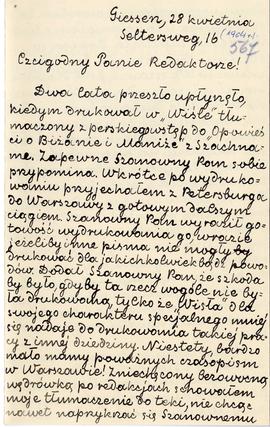 Giessen, 28 kwietnia
Seltersweg, 16 (1904 r.)
567
Czcigodny Panie Redaktorze!
Dwa lata przeszło upłynęło,
kiedym drukował w „Wiśle" tłu-
maczony z perskiego wstęp do „Opowieś-
ci o Biżanie i Maniże" z Szachna-
me. Zapewne Szanowny Pan sobie
przypomina. Wkrótce po wydruko-
waniu przyjechałem z Petersburga
do Warszawy z gotowym dalszym
ciągiem. Szanowny Pan wyraził go-
towość wydrukowania go w razie
jeżeliby inne pisma nie mogły by
drukować dla jakichkolwiekbądź powo-
dów. Dodał Szanowny Pan, że szkoda
by było, gdyby ta rzecz wogóle nie by-
ła drukowana, tylko że Wisła dla
swojego charakteru specjalnego mniej
się nadaje do drukowania takiej pra-
cy z innej dziedziny. Niestety, bardzo
mało mamy poważnych czasopism
w Warszawie! Zniechęcony bezowocną
wędrówką po redakcjach schowałem
moje tłumaczenie do teki, nie chcąc
nawet naprzykrzać się Szanownemu